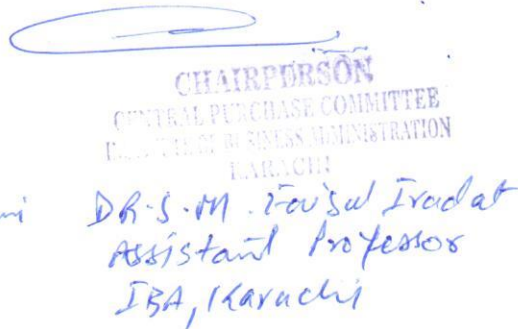 CHAIRPERSON
CENTRAL PURCHASE COMMITTEE
BUSINESS ADMINISTRATION
KARACHI
DR. S. M. Faisal Iradat
Assistant Professor
IBA, Karachi